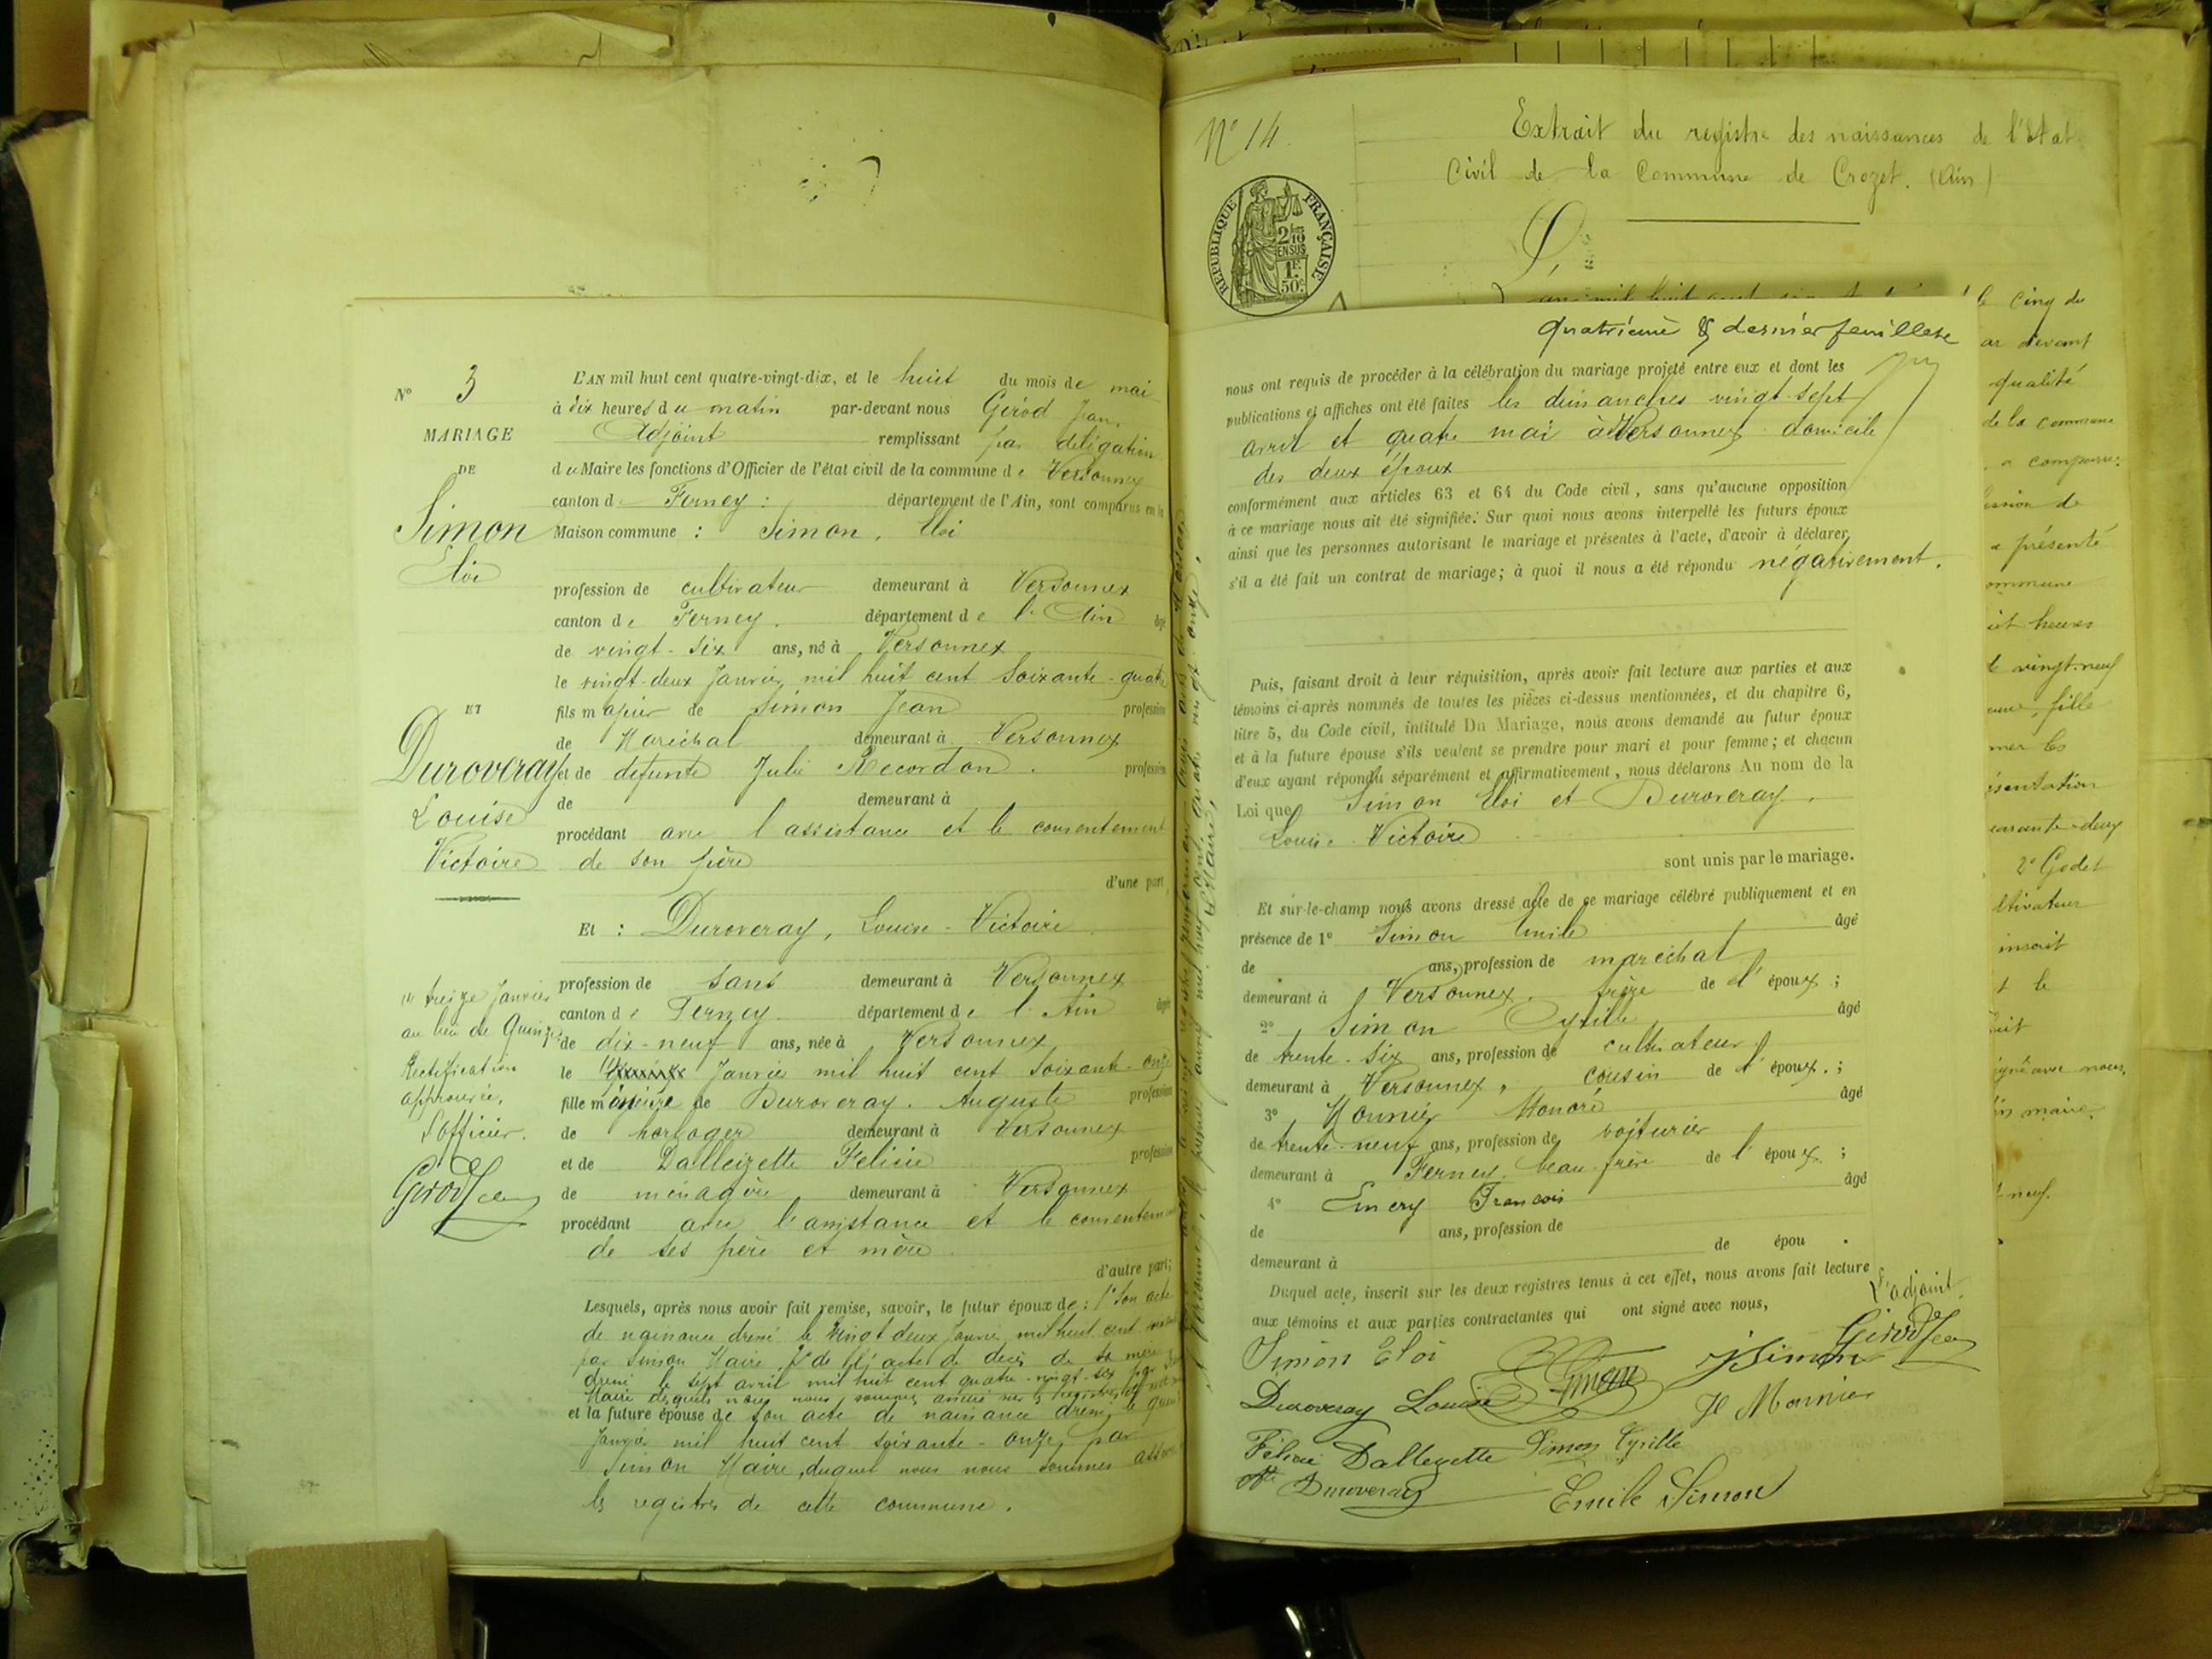 N° 3
MARIAGE
DE
Simon
Eloi
ET
Duroveray
Louise
Victoire
(1) treize Janvier
au lieu de Quinze
Rectification
approuvée.
L'officier.
Girod Jean
L'AN mil huit cent quatre-vingt-dix, et le huit du mois de mai
à dix heures du matin par-devant nous Girod Jean,
Adjoint remplissant par délégation
du Maire les fonctions d'Officier de l'état civil de la commune de Versonnex
canton de Ferney : département de l'Ain, sont comparus en la
Maison commune : Simon, Eloi
profession de cultivateur demeurant à Versonnex
canton de Ferney. département de l'Ain âgé
de vingt-six ans, né à Versonnex
le vingt-deux Janvier mil huit cent soixante-quatre
fils majeur de Simon Jean profession
de Maréchal demeurant à Versonnex
et de défunte Julie Recordon. profession
de demeurant à
procédant avec l'assistance et le consentement
de son père
d'une part,
Et : Duroveray, Louise-Victoire
profession de sans demeurant à Versonnex
canton de Ferney département de l'Ain âgée
de dix-neuf ans, née à Versonnex
le Janvier mil huit cent soixante-onze
fille mineure de Duroveray. Auguste profession
de horloger demeurant à Versonnex
et de Dalleizette Felicie profession
de ménagère demeurant à Versonnex
procédant avec l'assistance et le consentement
de ses père et mère.
d'autre part;
Lesquels, après nous avoir fait remise, savoir, le futur époux de : 1° Son acte
de naissance dressé le vingt deux Janvier mil huit cent
par Simon Maire. 2° de l'acte de décès de sa mère
dressé le sept avril mil huit cent quatre-vingt-six par
Maire desquels nous nous sommes assuré sur les registres de
et la future épouse de son acte de naissance dressé le quinze
Janvier mil huit cent soixante-onze, par
Simon Maire, duquel nous nous sommes assuré
les registres de cette commune.
N° 14.
Extrait du registre des naissances de l'état
Civil de la Commune de Crozet. (Ain)
REPUBLIQUE FRANÇAISE
2/10
EN SUS
1F.
50c.
quatrième & dernier feuillet
nous ont requis de procéder à la célébration du mariage projeté entre eux et dont les
publications et affiches ont été faites les dimanches vingt-sept
avril et quatre mai à Versonnex domicile
des deux époux
conformément aux articles 63 et 64 du Code civil, sans qu'aucune opposition
à ce mariage nous ait été signifiée. Sur quoi nous avons interpellé les futurs époux
ainsi que les personnes autorisant le mariage et présentes à l'acte, d'avoir à déclarer
s'il a été fait un contrat de mariage; à quoi il nous a été répondu négativement.
Puis, faisant droit à leur réquisition, après avoir fait lecture aux parties et aux
témoins ci-après nommés de toutes les pièces ci-dessus mentionnées, et du chapitre 6,
titre 5, du Code civil, intitulé Du Mariage, nous avons demandé au futur époux
et à la future épouse s'ils veulent se prendre pour mari et pour femme; et chacun
d'eux ayant répondu séparément et affirmativement, nous déclarons Au nom de la
Loi que Simon Eloi et Duroveray.
Louise Victoire
sont unis par le mariage.
Et sur-le-champ nous avons dressé acte de ce mariage célébré publiquement et en
présence de 1° Simon Emile âgé
de ans, profession de maréchal
demeurant à Versonnex, frère de l'époux;
2° Simon Cyrille âgé
de trente-six ans, profession de cultivateur
demeurant à Versonnex, cousin de l'époux.;
3° Mounier Honoré âgé
de trente-neuf ans, profession de voiturier
demeurant à Ferney, beau-frère de l'époux;
4° Emery François âgé
de ans, profession de
demeurant à de épou .
Duquel acte, inscrit sur les deux registres tenus à cet effet, nous avons fait lecture
aux témoins et aux parties contractantes qui ont signé avec nous,
L'adjoint
Girod Jean
Simon Eloi
J Simon
Duroveray Louise
H Mounier
Félicie Dallezette
Simon Cyrille
Duroveray
Emile Simon
le cinq du
par devant
qualité
de la commune
a comparu
de
a présenté
commune
heures
le vingt-neuf
fille
les
présentation
quarante-deux
2° Godet
cultivateur
inscrit
le
signé avec nous,
maire.
neuf.